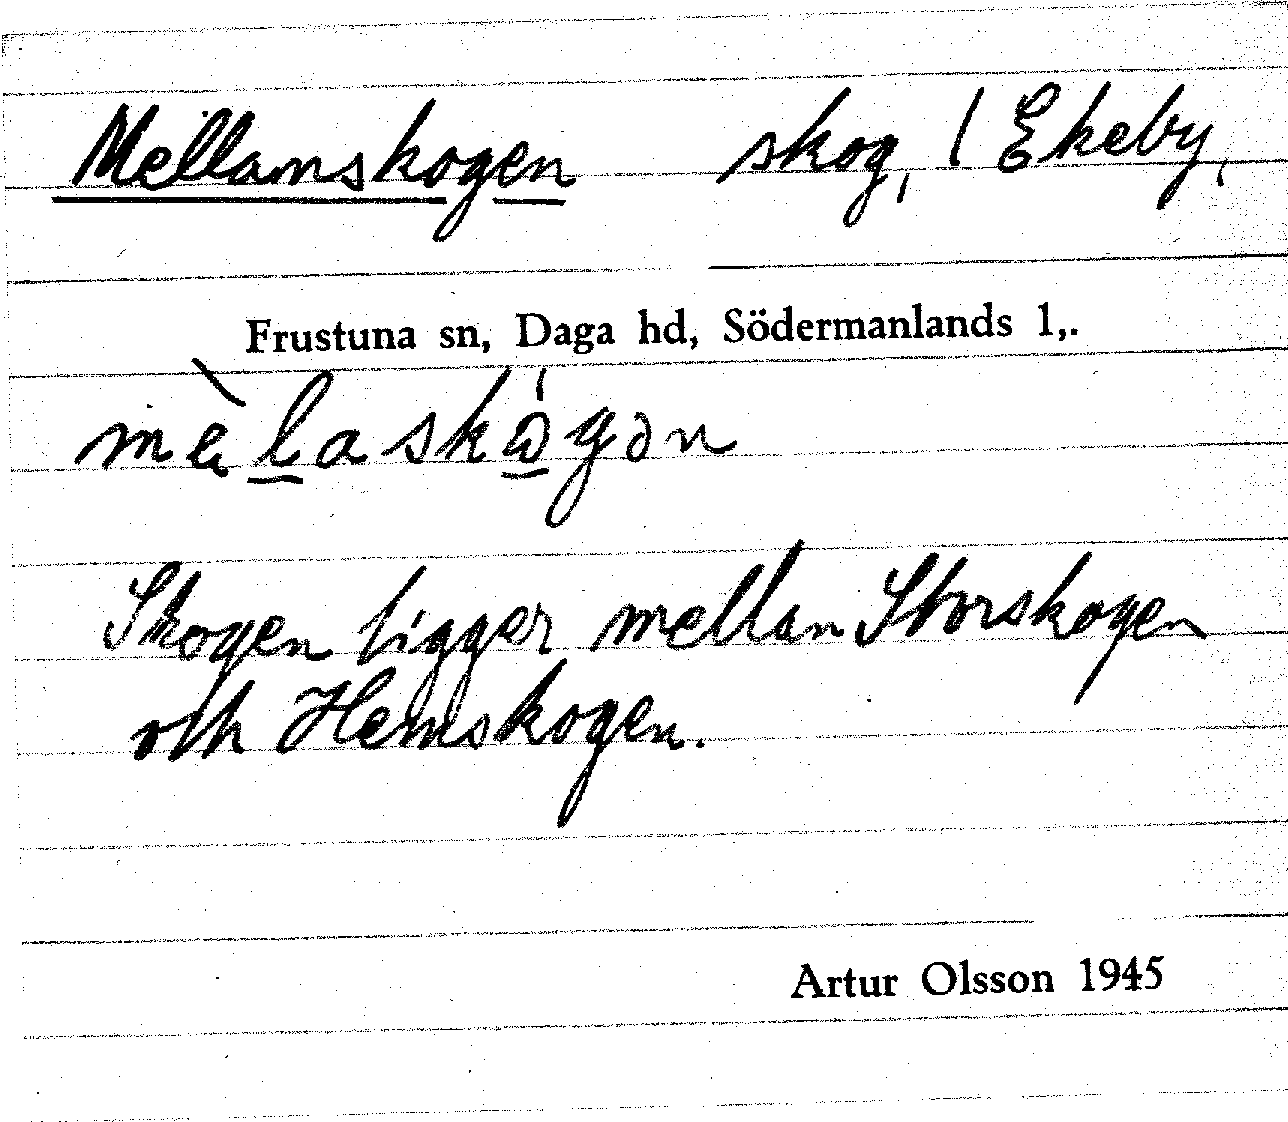 Mellanskogen skog, / Ekeby,
Frustuna sn, Daga hd, Södermanlands l,.
mèl̲askώ̲gən
Skogen ligger mellan Storskogen
och Hemskogen.
Artur Olsson 1945